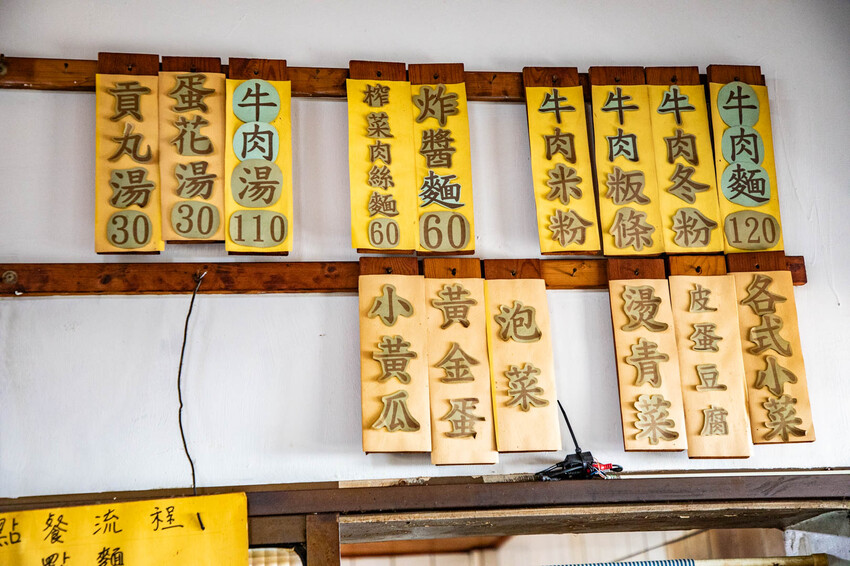 牛肉麵120
牛肉冬粉
牛肉粄條
牛肉米粉
炸醬麵60
榨菜肉絲麵60
牛肉湯110
蛋花湯30
貢丸湯30
各式小菜
皮蛋豆腐
燙青菜
泡菜
黃金蛋
小黃瓜
點餐流程
點麵